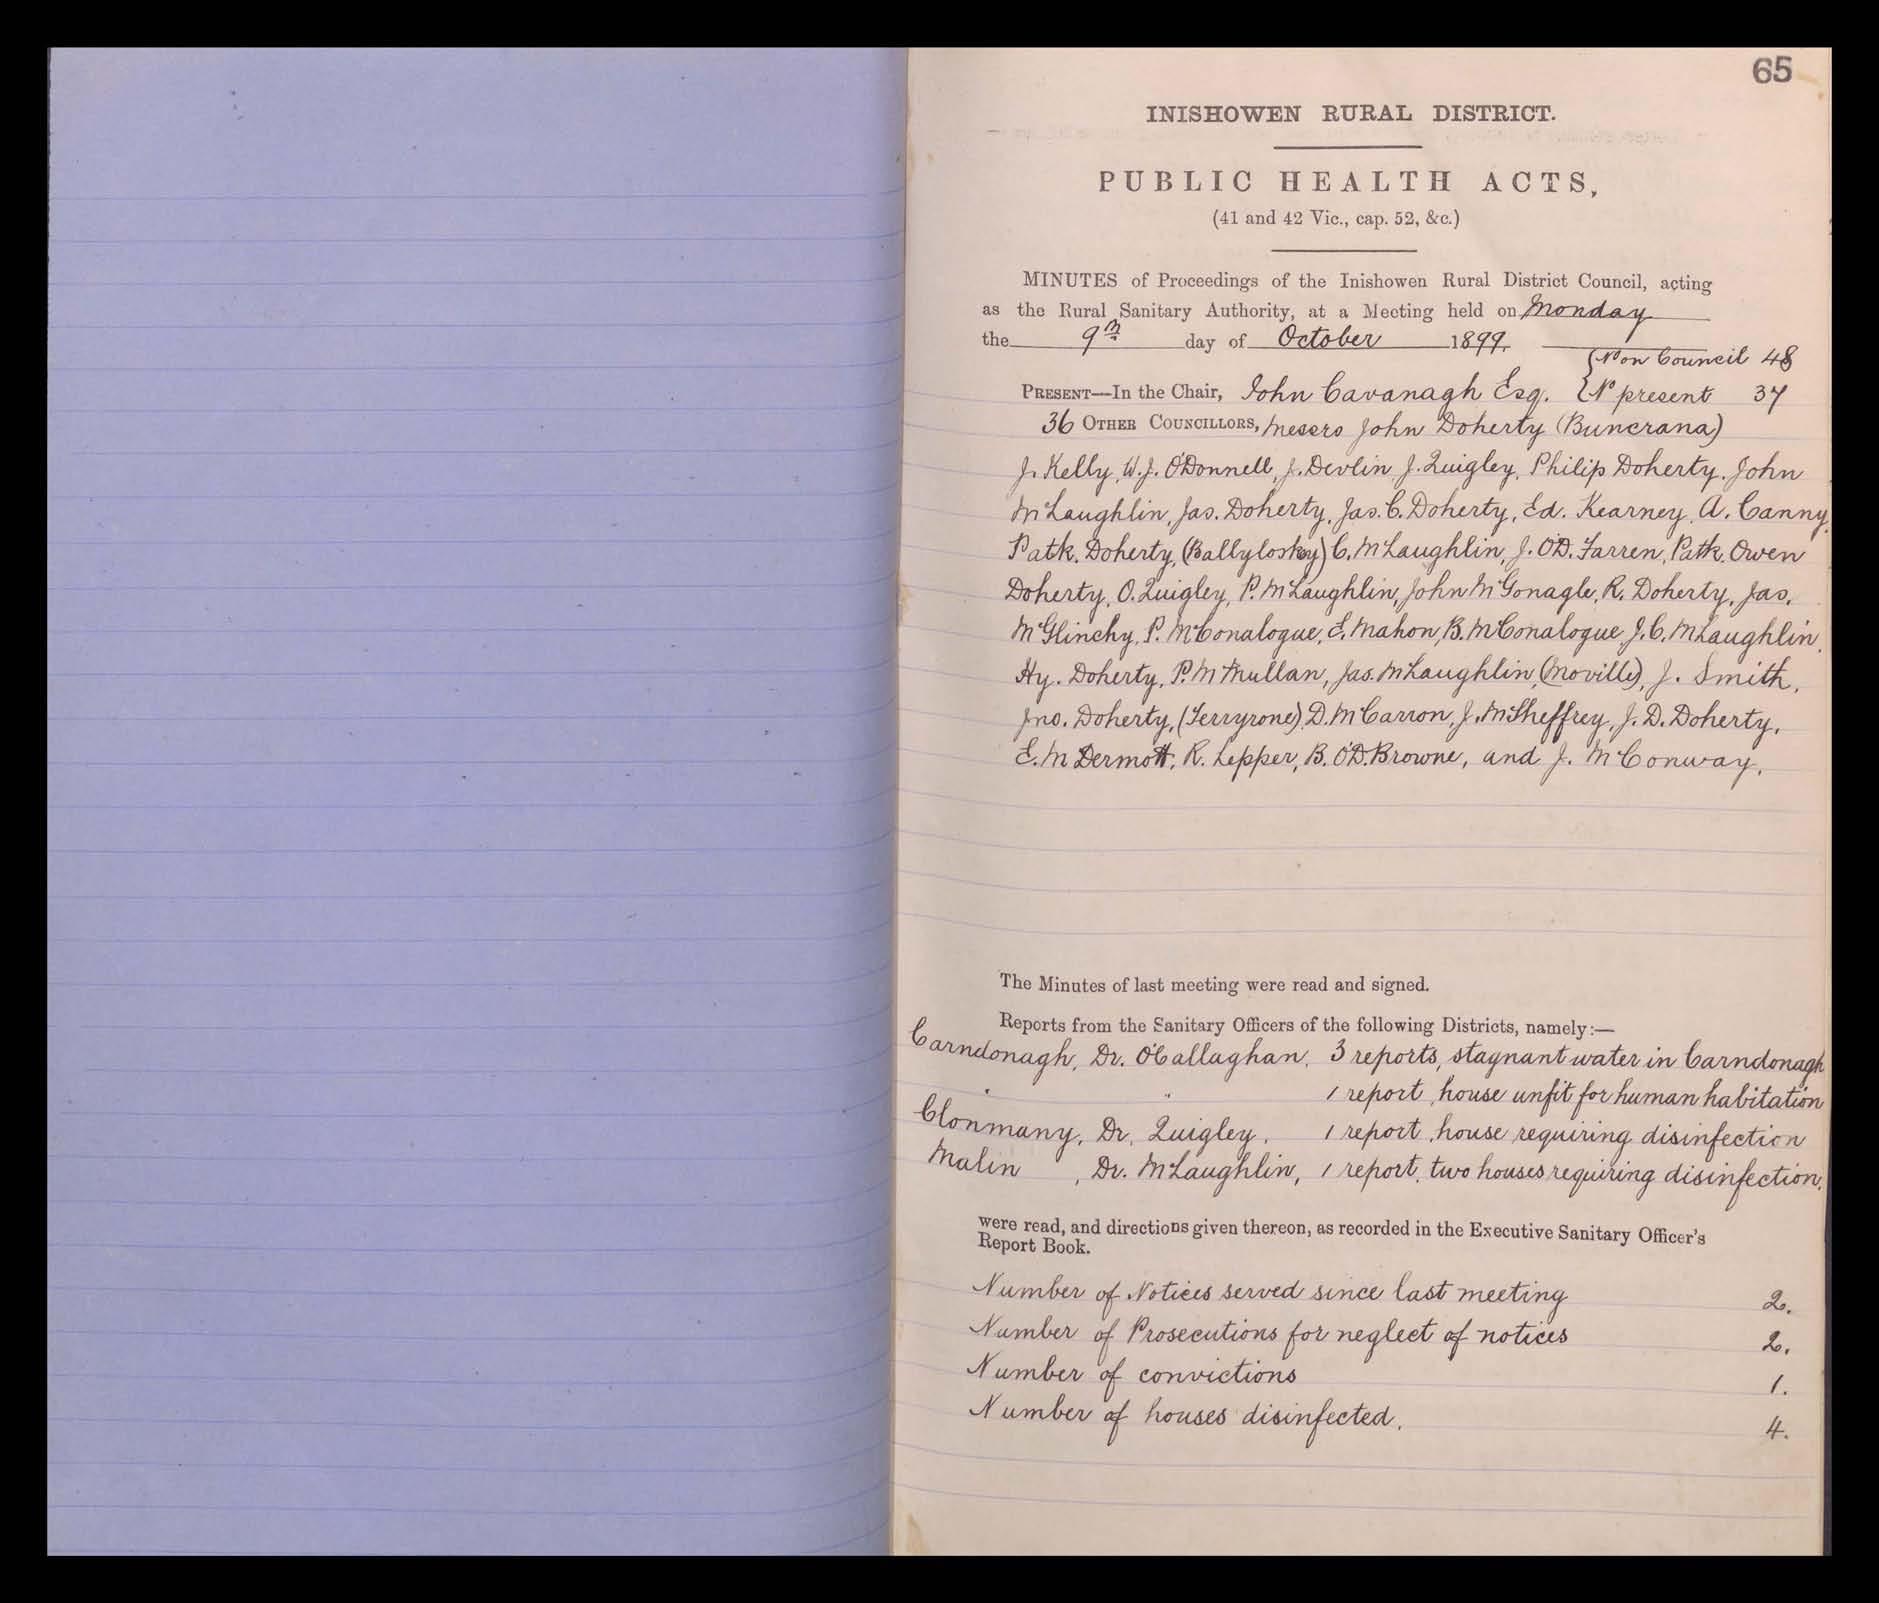 65
INISHOWEN RURAL DISTRICT.
PUBLIC HEALTH ACTS,
(41 and 42 Vic., cap. 52, &c.)
MINUTES of Proceedings of the Inishowen Rural District Council, acting
as the Rural Sanitary Authority, at a Meeting held on Monday
the 9th day of October 1899.
No on Council 48
PRESENT—In the Chair, John Cavanagh Esq. No present 37
36 OTHER COUNCILLORS, Messrs John Doherty (Buncrana)
J. Kelly, W.J. O'Donnell, J. Devlin, J. Quigley, Philip Doherty, John
McLaughlin, Jas. Doherty, Jas. C. Doherty, Ed. Kearney, A. Canny,
Patk. Doherty, (Ballylosky) C. McLaughlin, J. O'D. Farren, Patk. Owen
Doherty, O. Quigley, P. McLaughlin, John McGonagle, R. Doherty, Jas.
McGlinchy, P. McConalogue, E. Mahon, B. McConalogue, J.C. McLaughlin,
Hy. Doherty, P. McMullan, Jas. McLaughlin, (Moville), J. Smith,
Jno. Doherty, (Terryrone) D. McCarron, J. McSheffrey, J. D. Doherty,
E. McDermott, R. Lepper, B. O'D. Browne, and J. McConway.
The Minutes of last meeting were read and signed.
Reports from the Sanitary Officers of the following Districts, namely:—
Carndonagh, Dr. O'Callaghan, 3 reports, stagnant water in Carndonagh
" " 1 report, house unfit for human habitation
Clonmany, Dr. Quigley, 1 report, house requiring disinfection
Malin, Dr. McLaughlin, 1 report, two houses requiring disinfection.
were read, and directions given thereon, as recorded in the Executive Sanitary Officer's
Report Book.
Number of Notices served since last meeting 2.
Number of Prosecutions for neglect of notices 2.
Number of convictions 1.
Number of houses disinfected. 4.